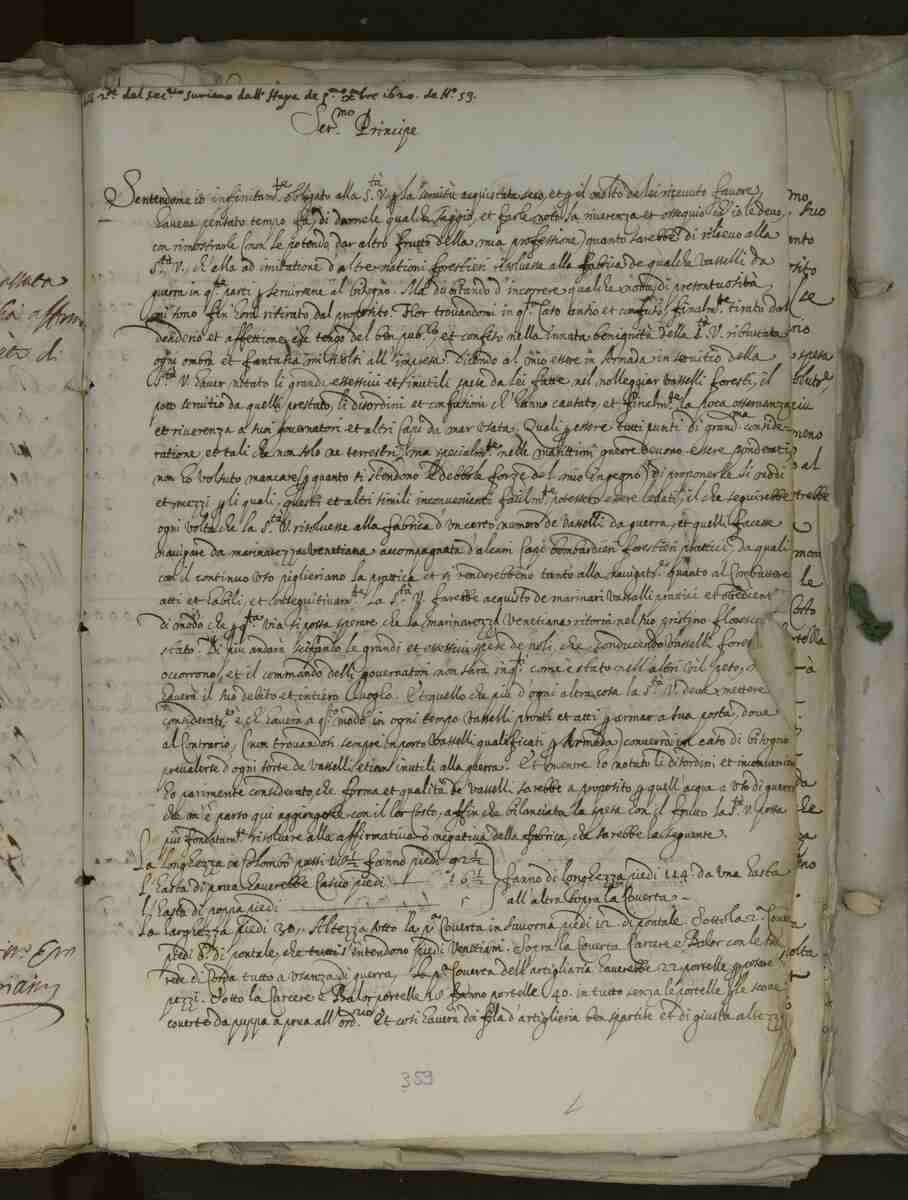 del sec.rio Suriano dall'Haya de p.mo xbre 1620. de N.o 59.
Ser.mo Principe
Sentendomi io infinitam.te obligato alla S.tà V. p la servitù acquistata seco, et p il molto da lei ricevuto favore
haveva pensato tempo fa di darmele qualche saggio, et farle noto la riverenza et ossequio ch'io le devo,
con rimostrarle (non le potendo dar altro frutto della mia professione) quanto sarebbe di rilievo alla
S.tà V., ch'ella ad imitatione d'altre nationi forestieri risolvesse alla fabrica de qualche vasselli da
guerra in q.te parti p servirsene al bisogno. Ma dubitando d'incorrere qualche nota di presontuosità
mi sono fin hora ritirato dal proposito. Hor trovandomi in q.to stato ansio et confuso, finalm.te tirato dal
desiderio et affettione, che tengo del ben pub.co, et confiso nella innata benignità della S.tà V. ributtata
ogni ombra et fantasia mi risolsi all'impresa. Dicendo al mio essere in Armada in servitio della
S.tà V. haver notato li grandi eccessivi et inutili spese da lei fatte, nel nolleggiar vasselli foresti, il
poco servitio da quelli prestato, li disordini et confusioni ch'hanno causato, et finalm.te la poca osservanza
et riverenza a suoi governatori et altri Capi da mar usata. Quali p essere tutti punti di grand.ma conside-
ratione, et tali che non solo ne terrestri, ma specialm.te nelle maritimi guerre devono essere ponderati
non ho voluto mancare p quanto si stendono le debole forze del mio ingegno di proponerle li modi
et mezzi p li quali questi et altri simili inconvenienti facilm.te potessero essere levati, il che seguirebbe
ogni volta che la S.tà V. risolvesse alla fabrica d'un certo numero de vasselli da guerra, et quelli facesse
navigare da marinarezza Venetiana accompagnata d'alcuni Capi bombardieri forestieri prattici, da quali
con il continuo uso piglieriano la prattica et si renderebbono tanto alla navigat.ne quanto al combattere
atti et habili, et consequitivam.te la S.tà V. farebbe acquisto de marinari vasselli prattici et obedient
Di modo che p q.ta via si possa sperare che la marinarezza Venetiana ritorni nel suo pristino
stato. Di piu andara scifando le grandi et eccessive spese de noli, che conducendo vasselli forest
occorrono, et il commando delli governatori non sarà in q.ti come è stato nell'altri vilipeso,
haverà il suo debito et intiero luogho. Et quello che piu d'ogni altra cosa la S.tà V. deve mettere
consideratio.ne è ch'haverà a q.to modo in ogni tempo vasselli pronti et atti p armar a sua posta, dove
al contrario, (non trovandosi sempre in porto vasselli qualificati p Armada) converrà in caso di bisogno
prevalerse d'ogni sorte de vasselli etiam inutili alla guerra. Et mentre ho notato li disordini et inconvenien
ho parimente considerato che forma et qualità de vasselli sarebbe a proposito p quell'acqua et uso di guerra
che m'è parso qui aggiongere con il lor costo, affin che bilanciata la spesa con il frutto la S.tà V. possa
piu fondatam.te risolvere alla affirmativa o negativa della fabrica, che sarebbe la seguente.
La longhezza de Colombo passi 18½ fanno piedi 92½
l'hasta di prua haverebbe lascio piedi 16½ fanno di longhezza piedi 114. da una hasta
l'hasta di poppa piedi 5 all'altra sopra la Coverta.
La larghezza piedi 30, Altezza sotto la p.a Coverta in savorna piedi 12. di pontale. Sotto la 2.a Cover
piedi 8. di pontale, che tutti s'intendono piedi Venetiani. Sopra la Coverta Carcere e Balor con le sue
rede di corda tutto a usanza di guerra, La p.a Coverta dell'artigliaria haverebbe 22 portelle p
pezzi. Sotto la Carcere e Balor portelle 18 fanno portelle 40. in tutto senza le portelle p le
coverte da puppa a prua all'ord.rio Et cosi haverà doi fila d'artiglieria ben spartite et di giusta altezz
359